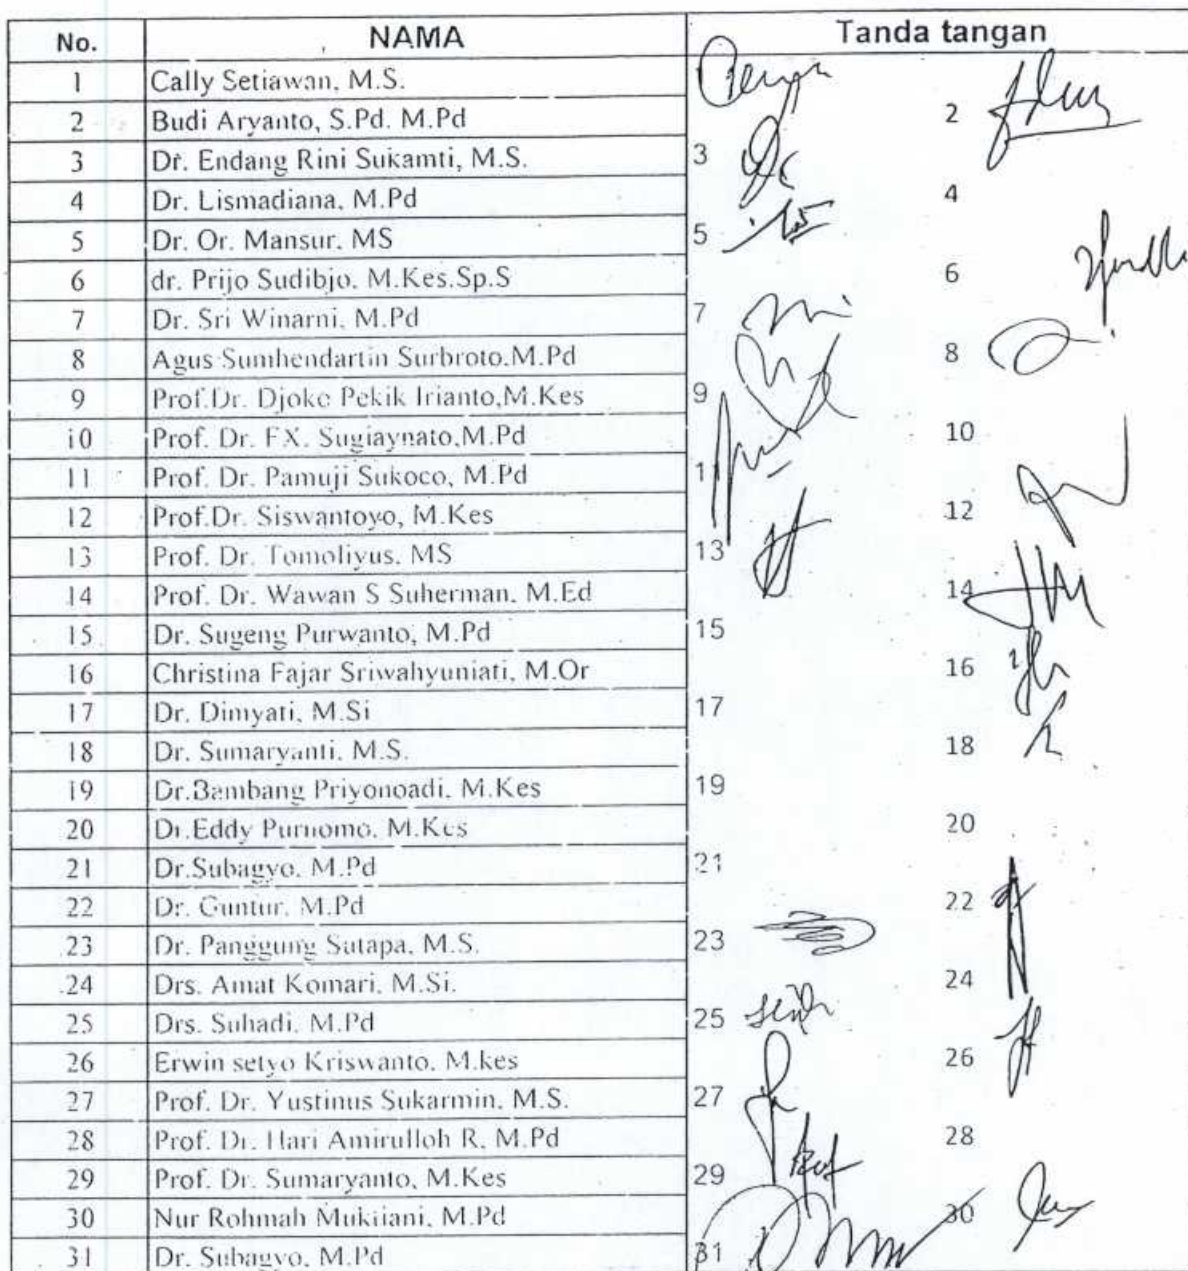 No. NAMA Tanda tangan
1 Cally Setiawan, M.S.
2 Budi Aryanto, S.Pd. M.Pd 2
3 Dr. Endang Rini Sukamti, M.S. 3
4 Dr. Lismadiana, M.Pd 4
5 Dr. Or. Mansur, MS 5
6 dr. Prijo Sudibjo, M.Kes.Sp.S 6
7 Dr. Sri Winarni, M.Pd 7
8 Agus Sumhendartin Surbroto.M.Pd 8
9 Prof.Dr. Djoko Pekik Irianto,M.Kes 9
10 Prof. Dr. FX. Sugiaynato,M.Pd 10
11 Prof. Dr. Pamuji Sukoco, M.Pd 11
12 Prof.Dr. Siswantoyo, M.Kes 12
13 Prof. Dr. Tomoliyus, MS 13
14 Prof. Dr. Wawan S Suherman, M.Ed 14
15 Dr. Sugeng Purwanto, M.Pd 15
16 Christina Fajar Sriwahyuniati, M.Or 16
17 Dr. Dimyati, M.Si 17
18 Dr. Sumaryanti, M.S. 18
19 Dr.Bambang Priyonoadi, M.Kes 19
20 Dr.Eddy Purnomo, M.Kes 20
21 Dr.Subagyo, M.Pd 21
22 Dr. Guntur, M.Pd 22
23 Dr. Panggung Sutapa, M.S. 23
24 Drs. Amat Komari, M.Si. 24
25 Drs. Suhadi, M.Pd 25
26 Erwin setyo Kriswanto, M.kes 26
27 Prof. Dr. Yustinus Sukarmin, M.S. 27
28 Prof. Dr. Hari Amirulloh R, M.Pd 28
29 Prof. Dr. Sumaryanto, M.Kes 29
30 Nur Rohmah Muktiani, M.Pd 30
31 Dr. Subagyo, M.Pd 31